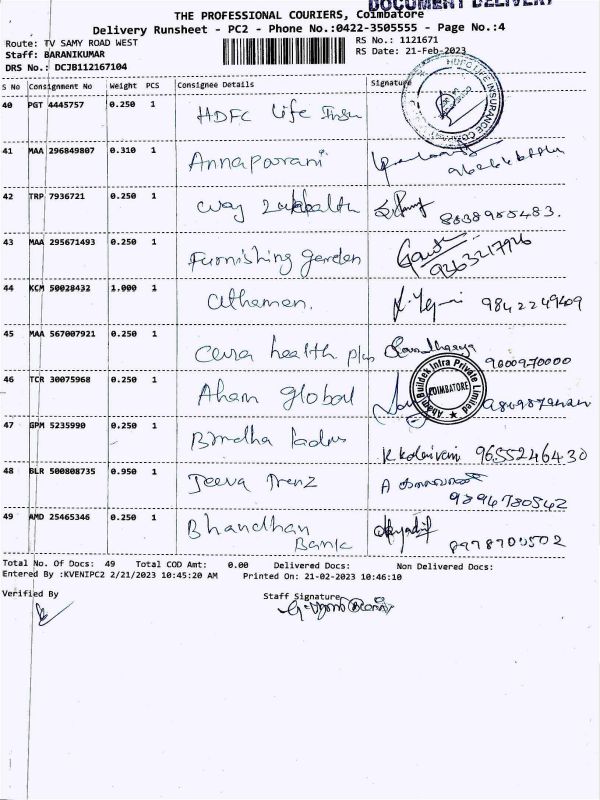 DOCUMENT DELIVERY
THE PROFESSIONAL COURIERS, Coimbatore
Delivery Runsheet - PC2 - Phone No.:0422-3505555 - Page No.:4
Route: TV SAMY ROAD WEST
RS No.: 1121671
Staff: BARANIKUMAR
RS Date: 21-Feb-2023
DRS No.: DCJB112167104
S No Consignment No Weight PCS Consignee Details Signature
40 PGT 4445757 0.250 1 HDFC Life Insu
HDFC LIFE INSURANCE COMPANY
41 MAA 296849807 0.310 1 Annapoorani
42 TRP 7936721 0.250 1 8838985483.
43 MAA 295671493 0.250 1 Furnishing garden 9263217926
44 KCM 50028432 1.000 1 athaman. 9842249609
45 MAA 567007921 0.250 1 Cura health plus 9600970000
46 TCR 30075968 0.250 1 Aham Global
Aham Buildek Infra Private Limited
COIMBATORE
47 GPM 5235990 0.250 1 Brindha 9655246430
48 BLR 500808735 0.950 1 Jeeva Trenz 9894780542
49 AMD 25465346 0.250 1 Bhandhan
Bank 8978700502
Total No. Of Docs: 49 Total COD Amt: 0.00 Delivered Docs: Non Delivered Docs:
Entered By :KVENIPC2 2/21/2023 10:45:20 AM Printed On: 21-02-2023 10:46:10
Verified By
Staff Signature